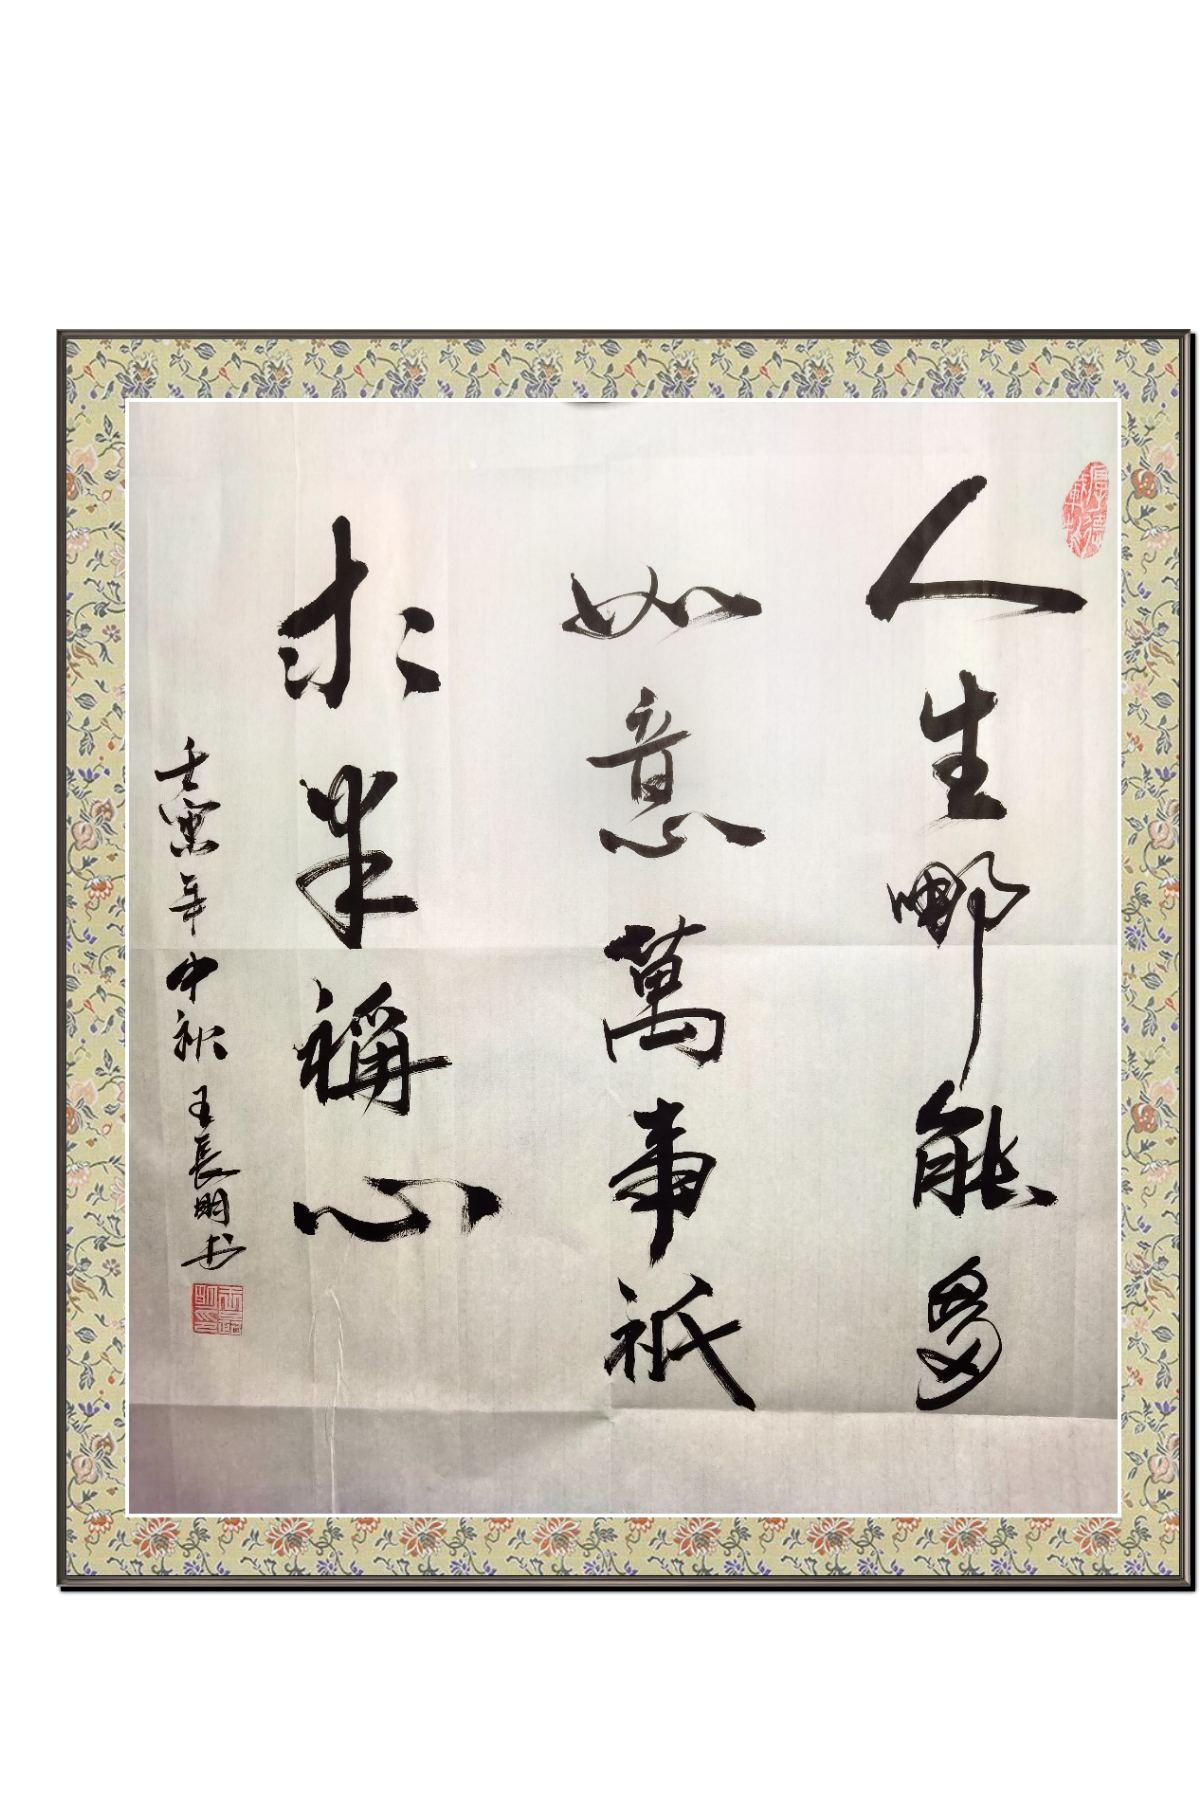 人生哪能多
如意萬事祇
求半稱心
壬寅年中秋 王長明书
厚德載物